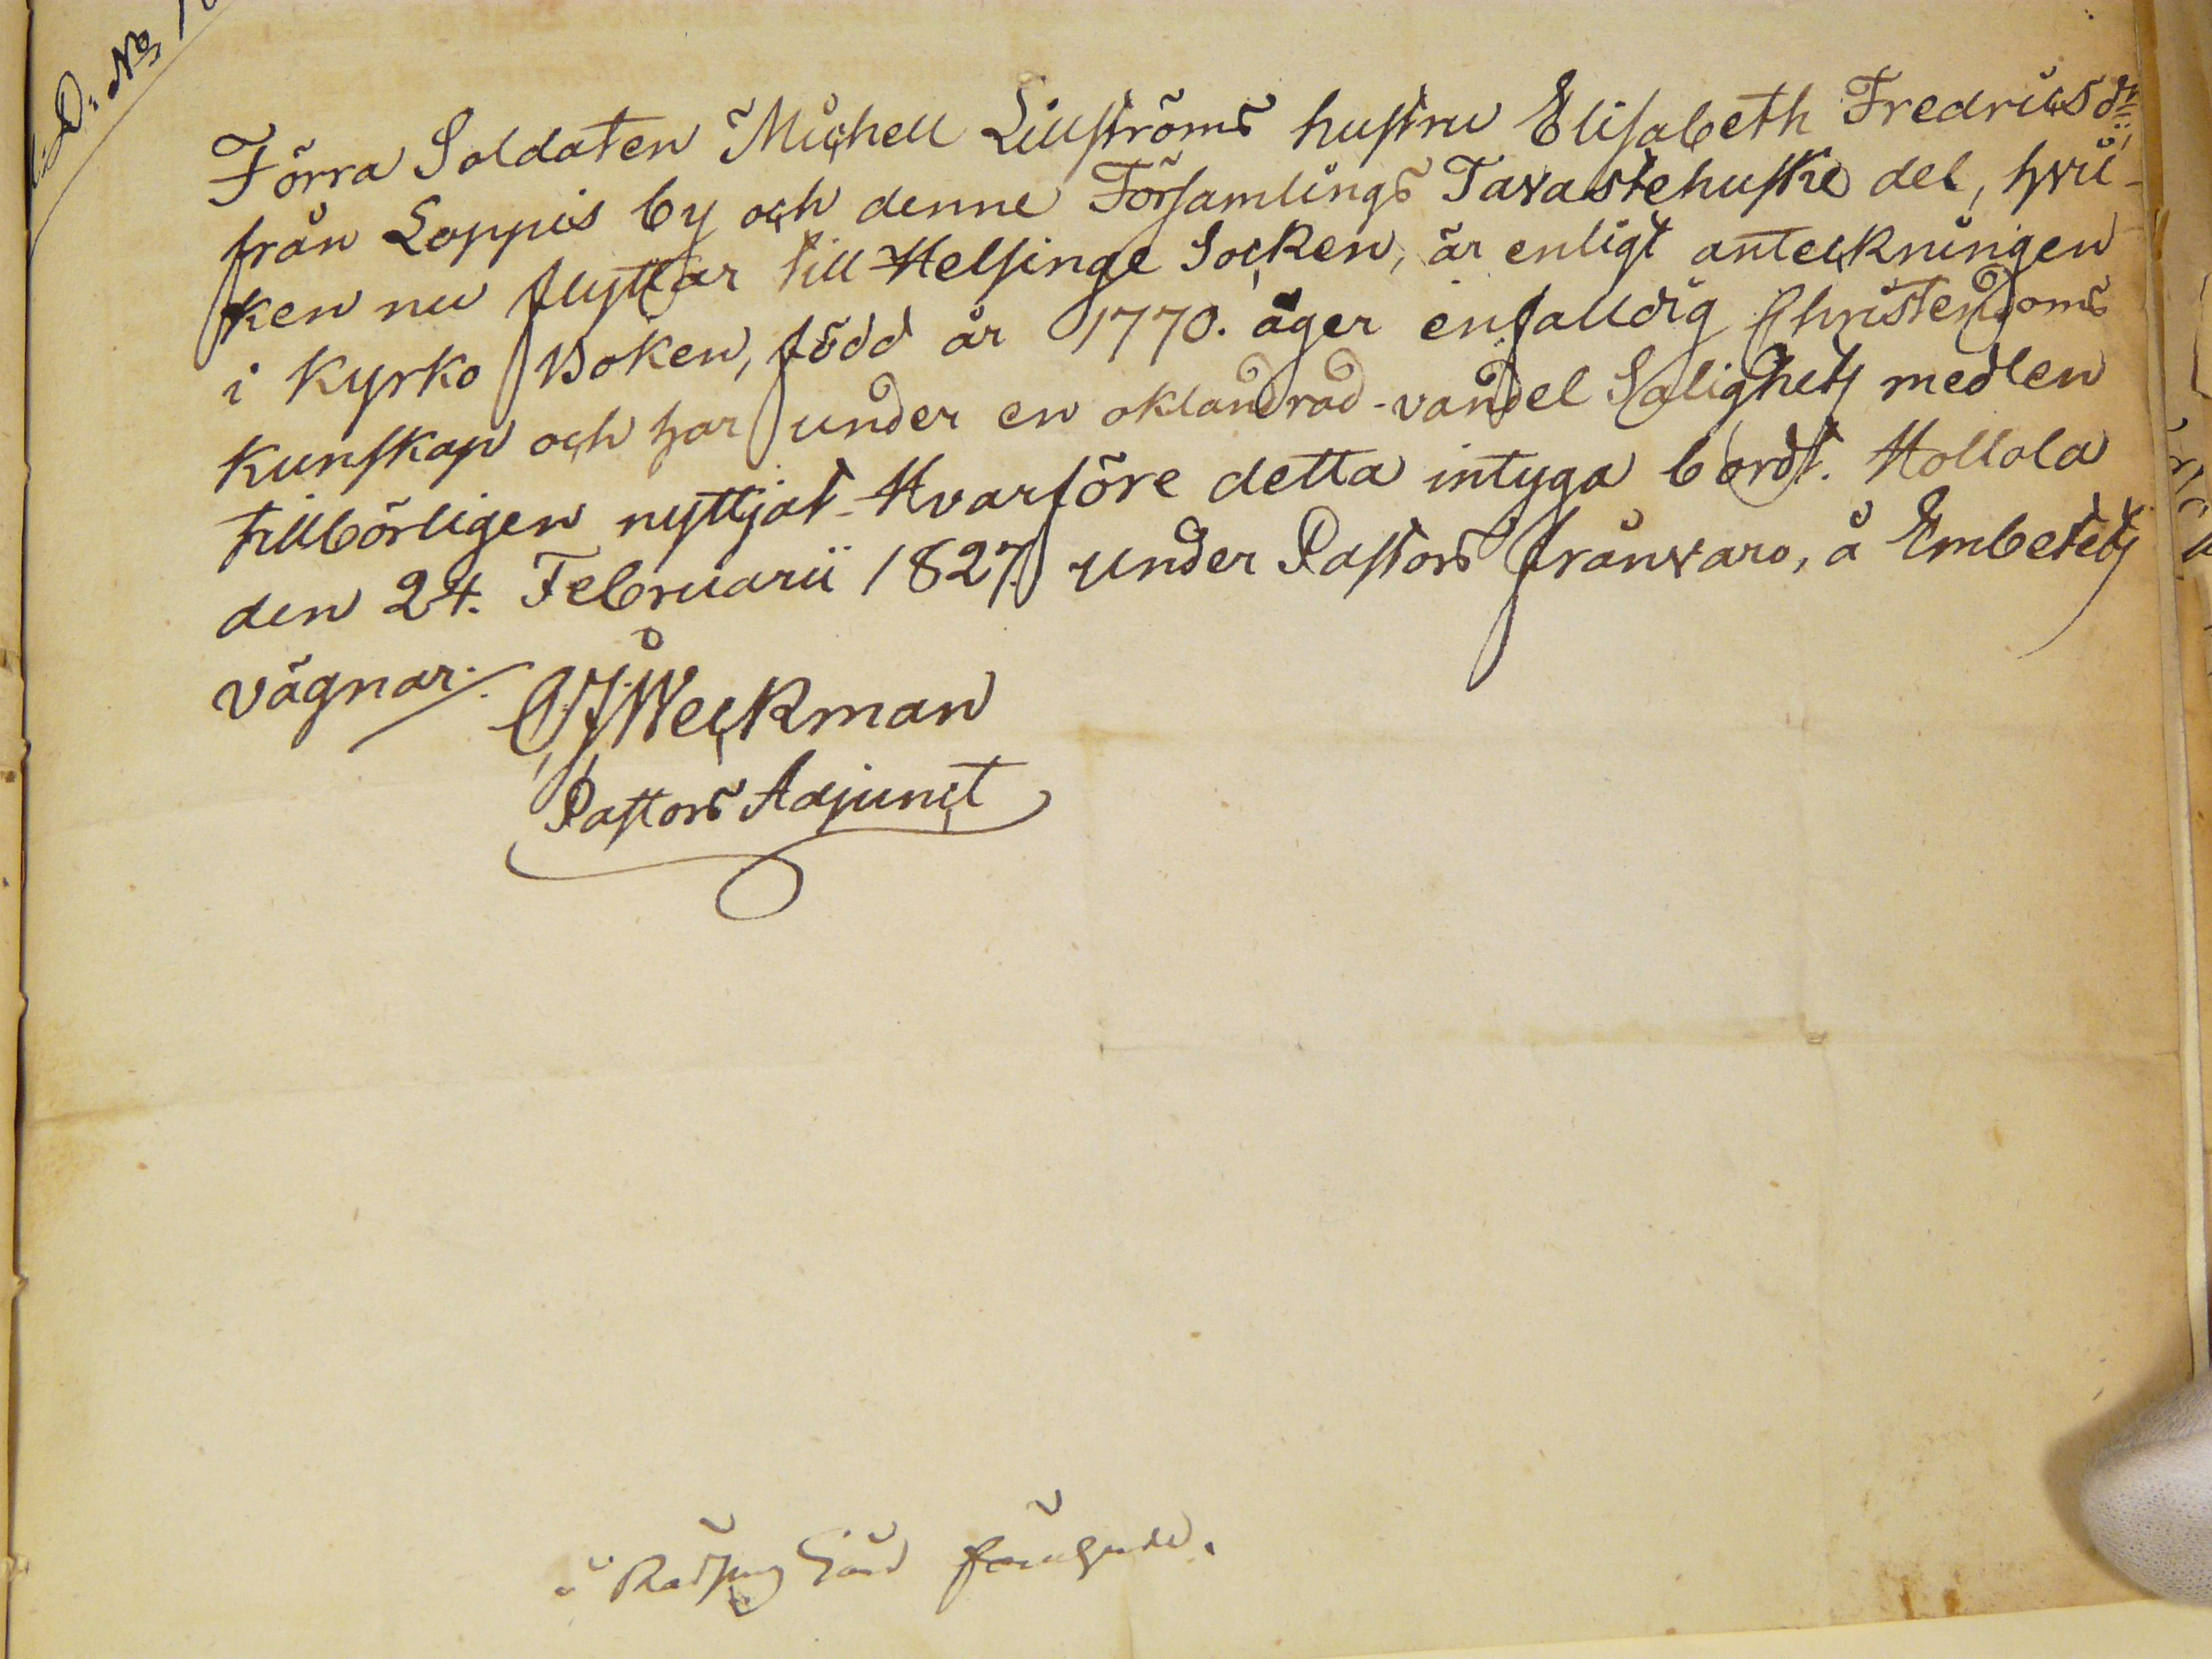 D: No
Förra Soldaten Michell Lillströms hustru Elisabeth Fredricsdr
från Loppis by och denne Församlings Tavastehuske del, hvil-
ken nu flyttar till Helsinge Socken, är enligt anteckningen
i Kyrko Boken, född år 1770. äger enfalldig Christendoms
kunskap och har under en oklandrad vandel Salighets medlen
tillbörligen nyttjat Hvarföre detta intyga bordt. Hollola
den 24. Februarii 1827. under Pastors frånvaro, å Embetets
vägnar.
Weckman
Pastors Adjunct